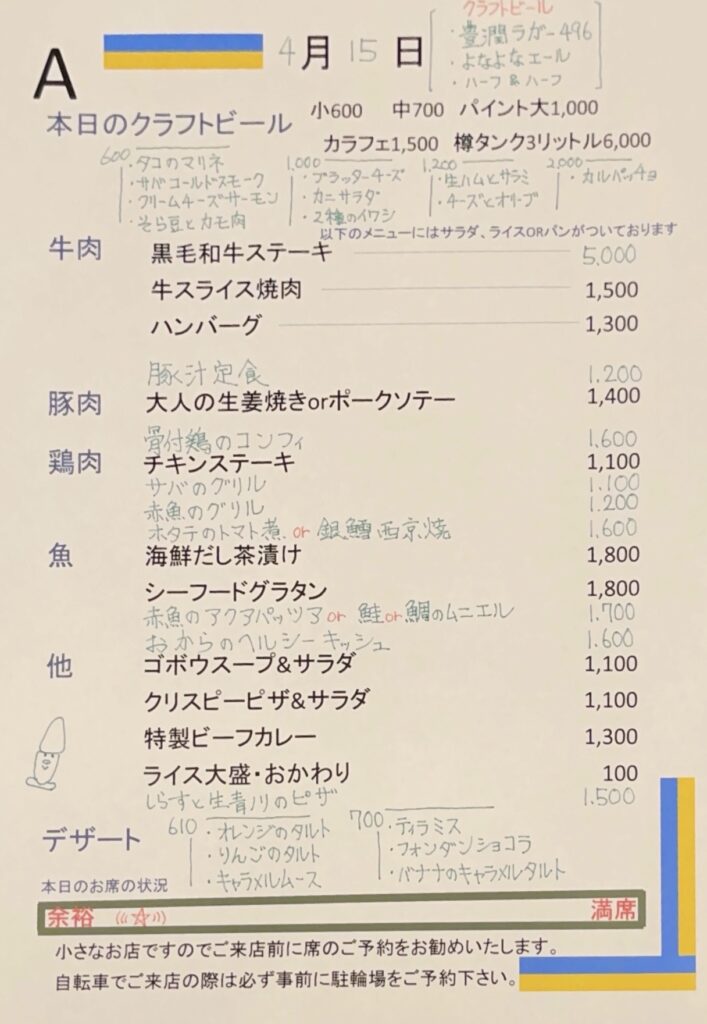 A
4月15日
クラフトビール
・豊潤ラガー496
・よなよなエール
・ハーフ&ハーフ
本日のクラフトビール
小600 中700 パイント大1,000
カラフェ1,500 樽タンク3リットル6,000
600
・タコのマリネ
・サバコールドスモーク
・クリームチーズサーモン
・そら豆とカモ肉
1,000
・ブラッターチーズ
・カニサラダ
・2種のイワシ
1,200
・生ハムとサラミ
・チーズとオリーブ
2,000
・カルパッチョ
以下のメニューにはサラダ、ライスORパンがついております
牛肉
黒毛和牛ステーキ 5,000
牛スライス焼肉 1,500
ハンバーグ 1,300
豚汁定食 1.200
豚肉 大人の生姜焼きorポークソテー 1,400
骨付鶏のコンフィ 1.600
鶏肉 チキンステーキ 1,100
サバのグリル 1.100
赤魚のグリル 1.200
ホタテのトマト煮 or 銀鱈西京焼 1.600
魚 海鮮だし茶漬け 1,800
シーフードグラタン 1,800
赤魚のアクアパッツァor 鮭or鯛のムニエル 1.700
おからのヘルシーキッシュ 1.600
他 ゴボウスープ&サラダ 1,100
クリスピーピザ&サラダ 1,100
特製ビーフカレー 1,300
ライス大盛・おかわり 100
しらすと生青川のピザ 1.500
デザート
610
・オレンジのタルト
・りんごのタルト
・キャラメルムース
700
・ティラミス
・フォンダンショコラ
・バナナのキャラメルタルト
本日のお席の状況
余裕 ((☆)) 満席
小さなお店ですのでご来店前に席のご予約をお勧めいたします。
自転車でご来店の際は必ず事前に駐輪場をご予約下さい。